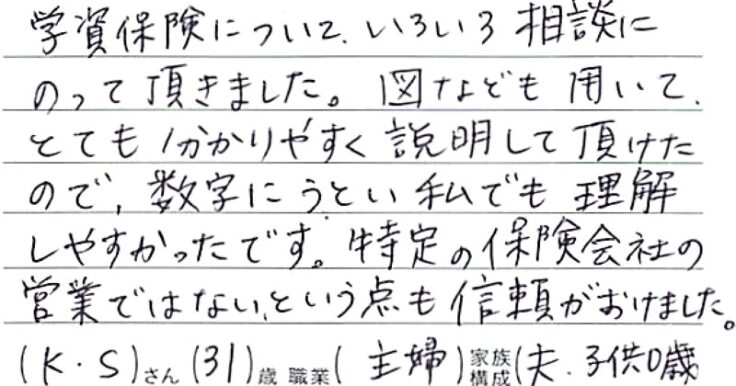 学資保険について、いろいろ相談に
のって頂きました。図なども用いて、
とても分かりやすく説明して頂けた
ので、数字にうとい私でも理解
しやすかったです。特定の保険会社の
営業ではない、という点も信頼がおけました。
(K・S)さん(31)歳 職業(主婦)家族構成(夫、子供0歳